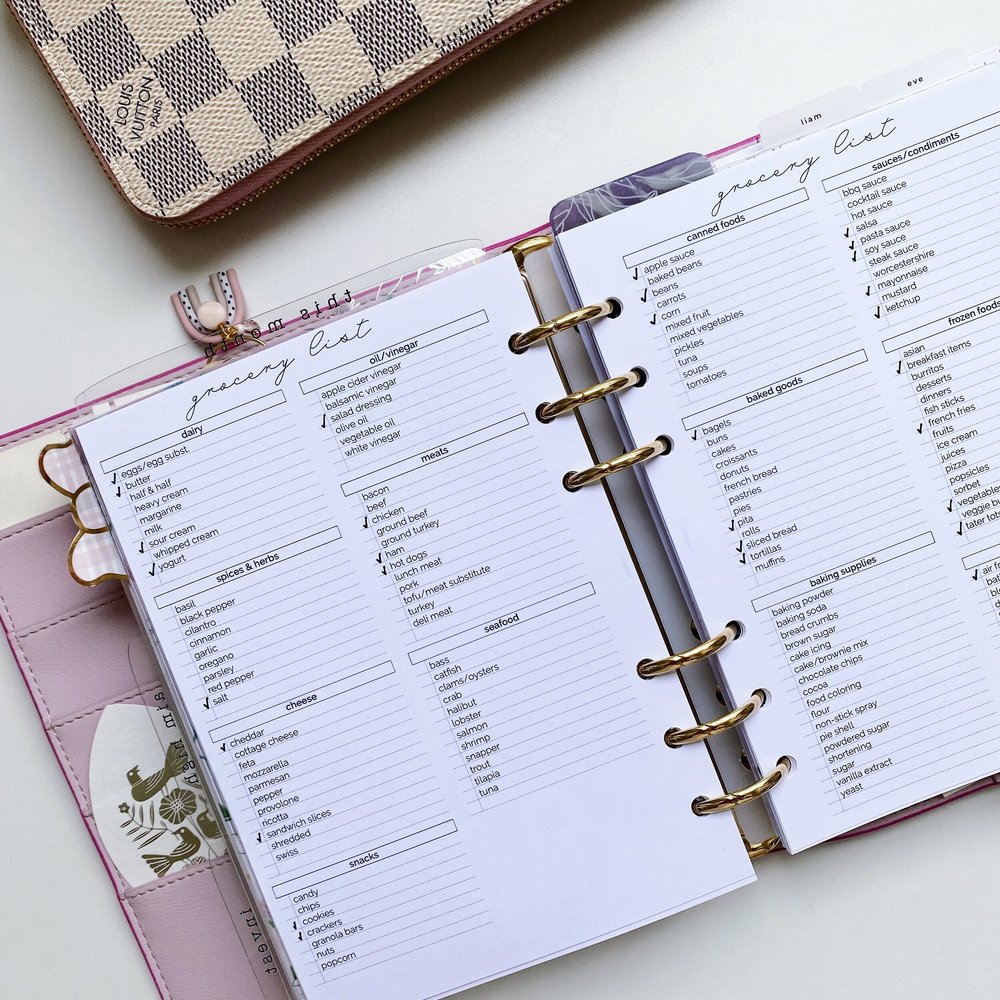 LOUIS
VUITTON
PARIS
this month
grocery list
dairy
eggs/egg subst
butter
half & half
heavy cream
margarine
milk
sour cream
whipped cream
yogurt
spices & herbs
basil
black pepper
cilantro
cinnamon
garlic
oregano
parsley
red pepper
salt
cheese
cheddar
cottage cheese
feta
mozzarella
parmesan
pepper
provolone
ricotta
sandwich slices
shredded
swiss
snacks
candy
chips
cookies
crackers
granola bars
nuts
popcorn
oil/vinegar
apple cider vinegar
balsamic vinegar
salad dressing
olive oil
vegetable oil
white vinegar
meats
bacon
beef
chicken
ground beef
ground turkey
ham
hot dogs
lunch meat
pork
tofu/meat substitute
turkey
deli meat
seafood
bass
catfish
clams/oysters
crab
halibut
lobster
salmon
shrimp
snapper
trout
tilapia
tuna
liam
eve
grocery list
canned foods
apple sauce
baked beans
beans
carrots
corn
mixed fruit
mixed vegetables
pickles
tuna
soups
tomatoes
baked goods
bagels
buns
cakes
croissants
donuts
french bread
pastries
pies
pita
rolls
sliced bread
tortillas
muffins
baking supplies
baking powder
baking soda
bread crumbs
brown sugar
cake icing
cake/brownie mix
chocolate chips
cocoa
food coloring
flour
non-stick spray
pie shell
powdered sugar
shortening
sugar
vanilla extract
yeast
sauces/condiments
bbq sauce
cocktail sauce
hot sauce
salsa
pasta sauce
soy sauce
steak sauce
worcestershire
mayonnaise
mustard
ketchup
frozen foods
asian
breakfast items
burritos
desserts
dinners
fish sticks
french fries
fruits
ice cream
juices
pizza
popsicles
sorbet
vegetables
veggie
tater tots
air
travel